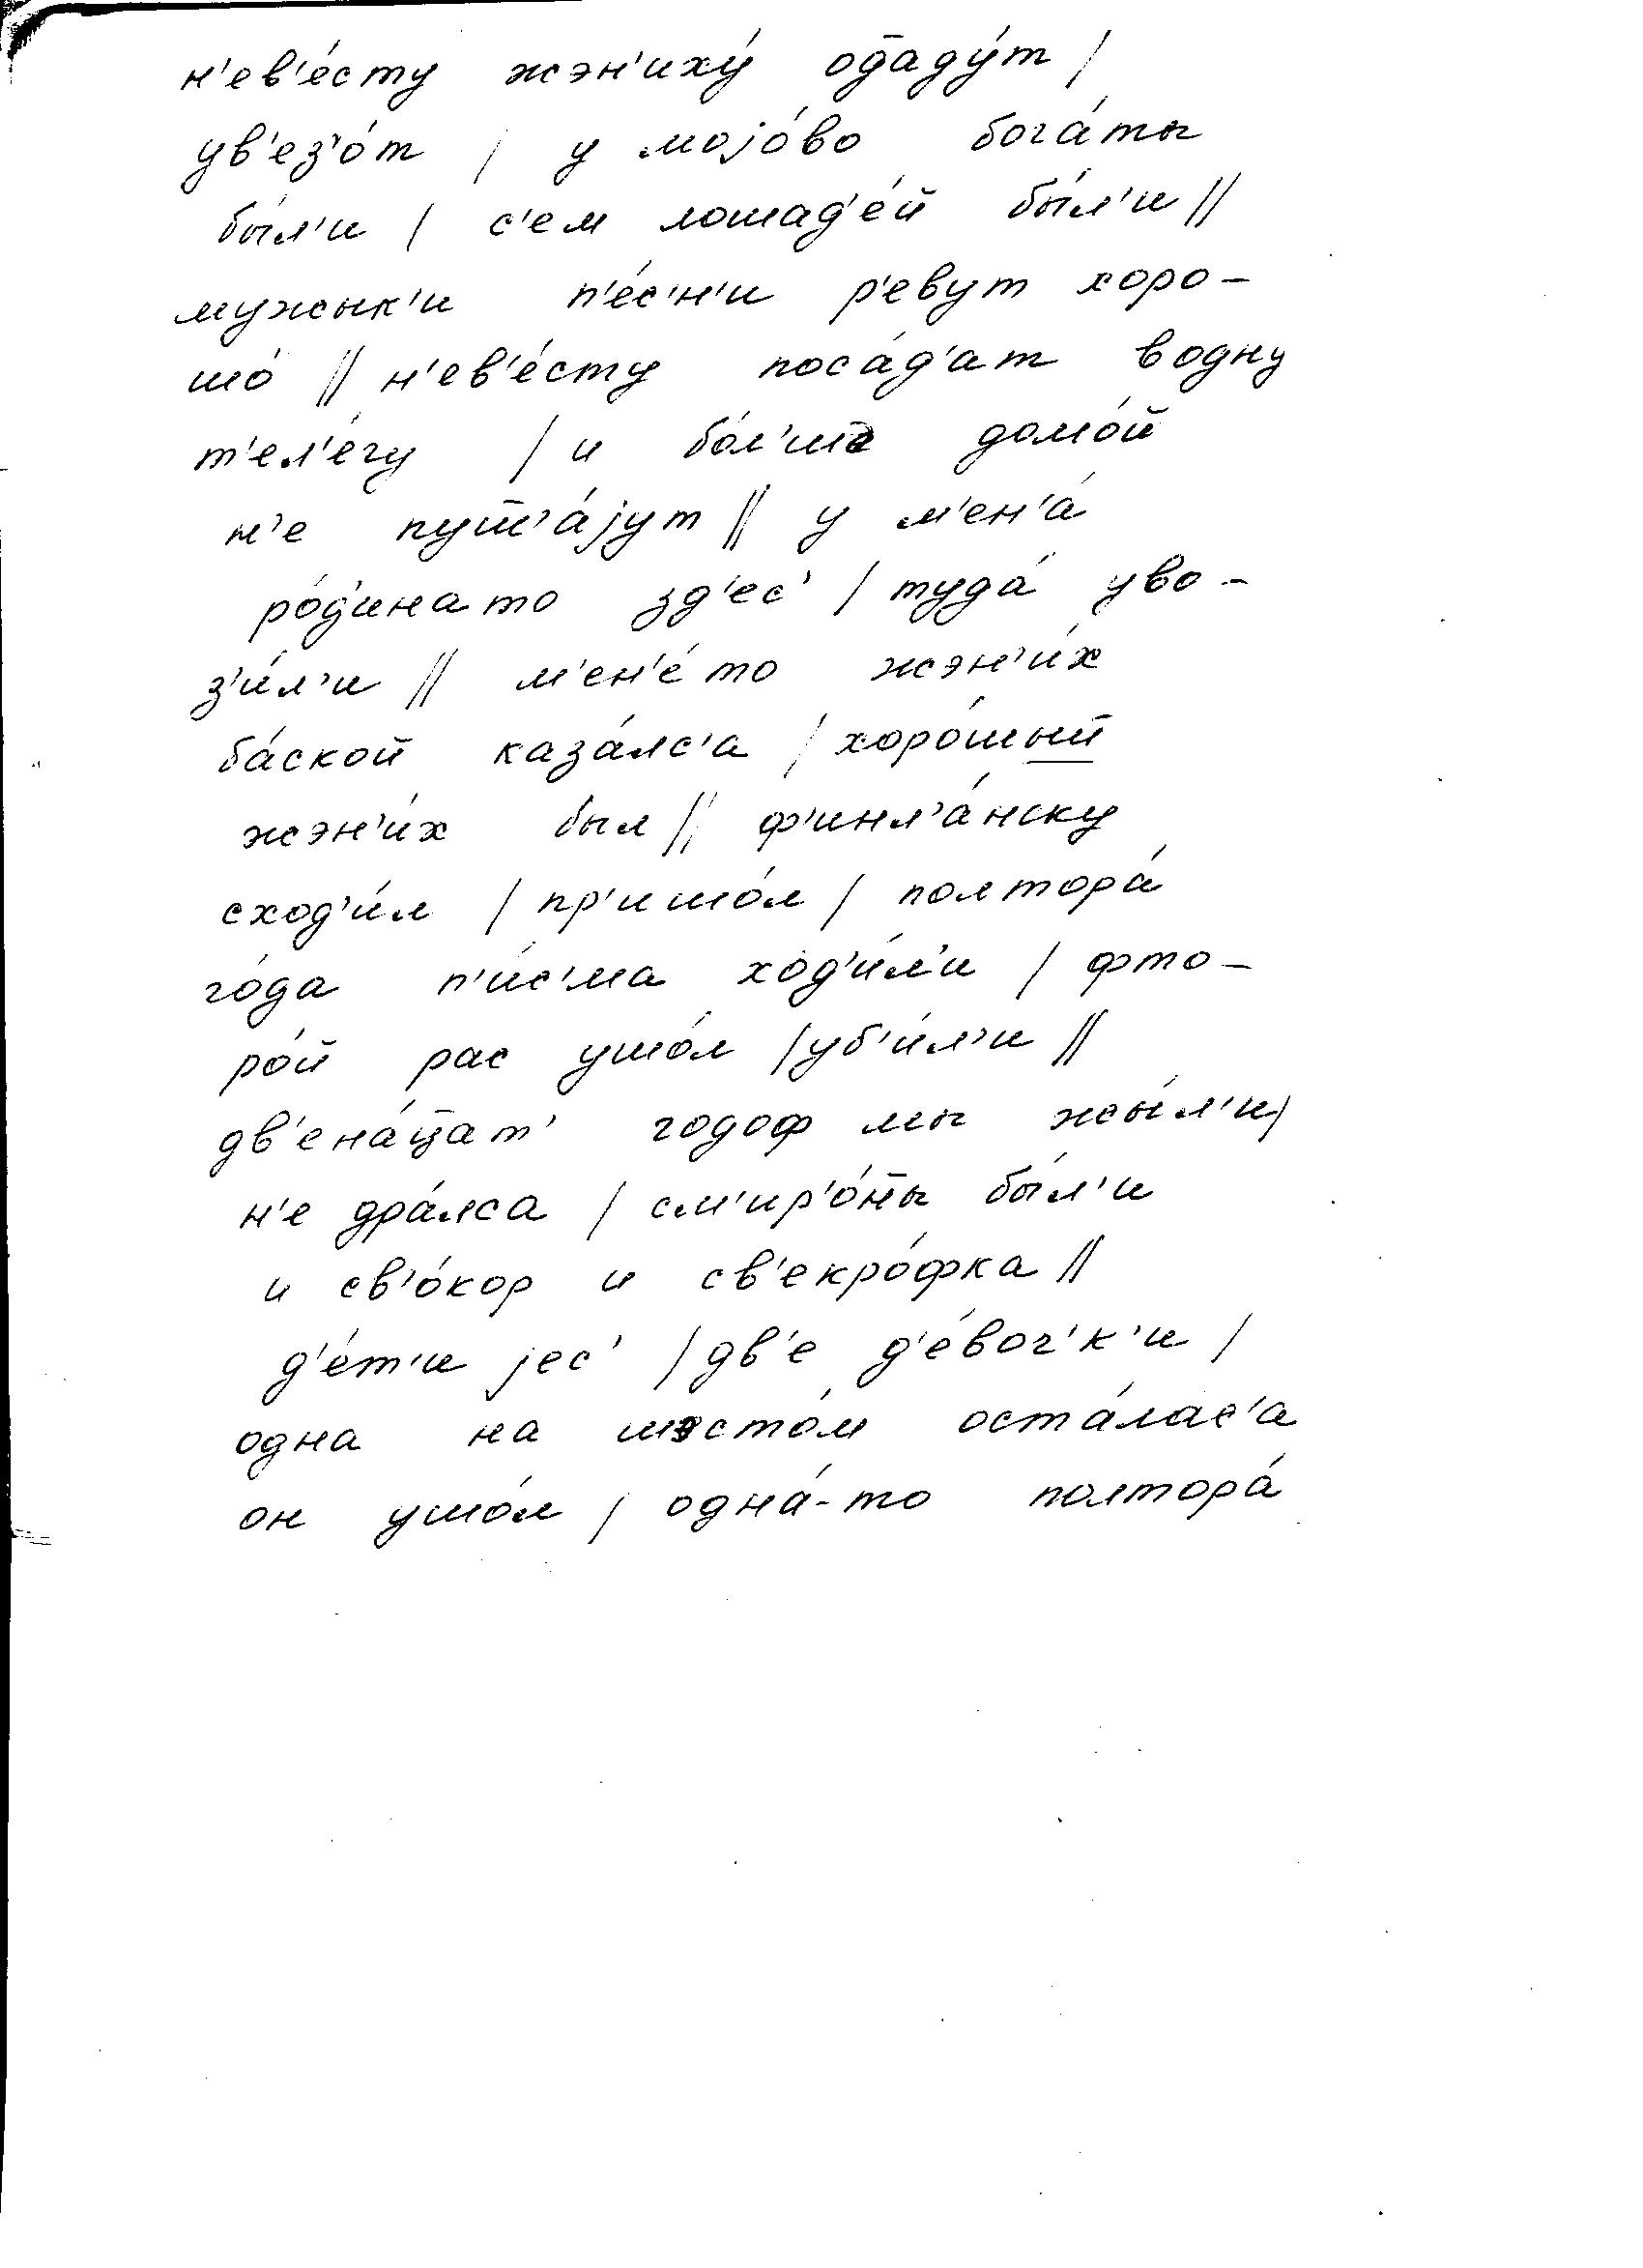 н'ев'е́сту жэн'иху́ од̅аду́т /
ув'ез'о́т / у моjо́во бога́ты
бы́л'и / с'ем лошад'е́й бы́л'и //
мужык'и п'е́с'н'и р'евут хоро –
шо́ // н'ев'е́сту поса́д'ат водну
т'ел'е́гу / и бо́л'шэ домо́й
н'е пуш̅'а́jут // у м'ен'а́
ро́д'ина то зд'ес' / туда́ уво –
з'и́л'и // м'ен'е́ то жэн'и́х
ба́ской каза́лс'а / хоро́шый
жэн'и́х был // ф'инл'а́нску
сход'и́л / пр'ишо́л / полтора́
го́да п'и́с'ма ход'и́л'и / фто –
ро́й рас ушо́л / уб'и́л'и //
дв'ена́ц̅ат' годоф мы жы́л'и /
н'е дра́лса / см'ир'о́н̅ы бы́л'и
и св'о́кор и св'екро́фка //
д'е́т'и jес' / дв'е д'е́воч'к'и /
одна на шэсто́м оста́лас'а
он ушо́л / одна́-то полтора́